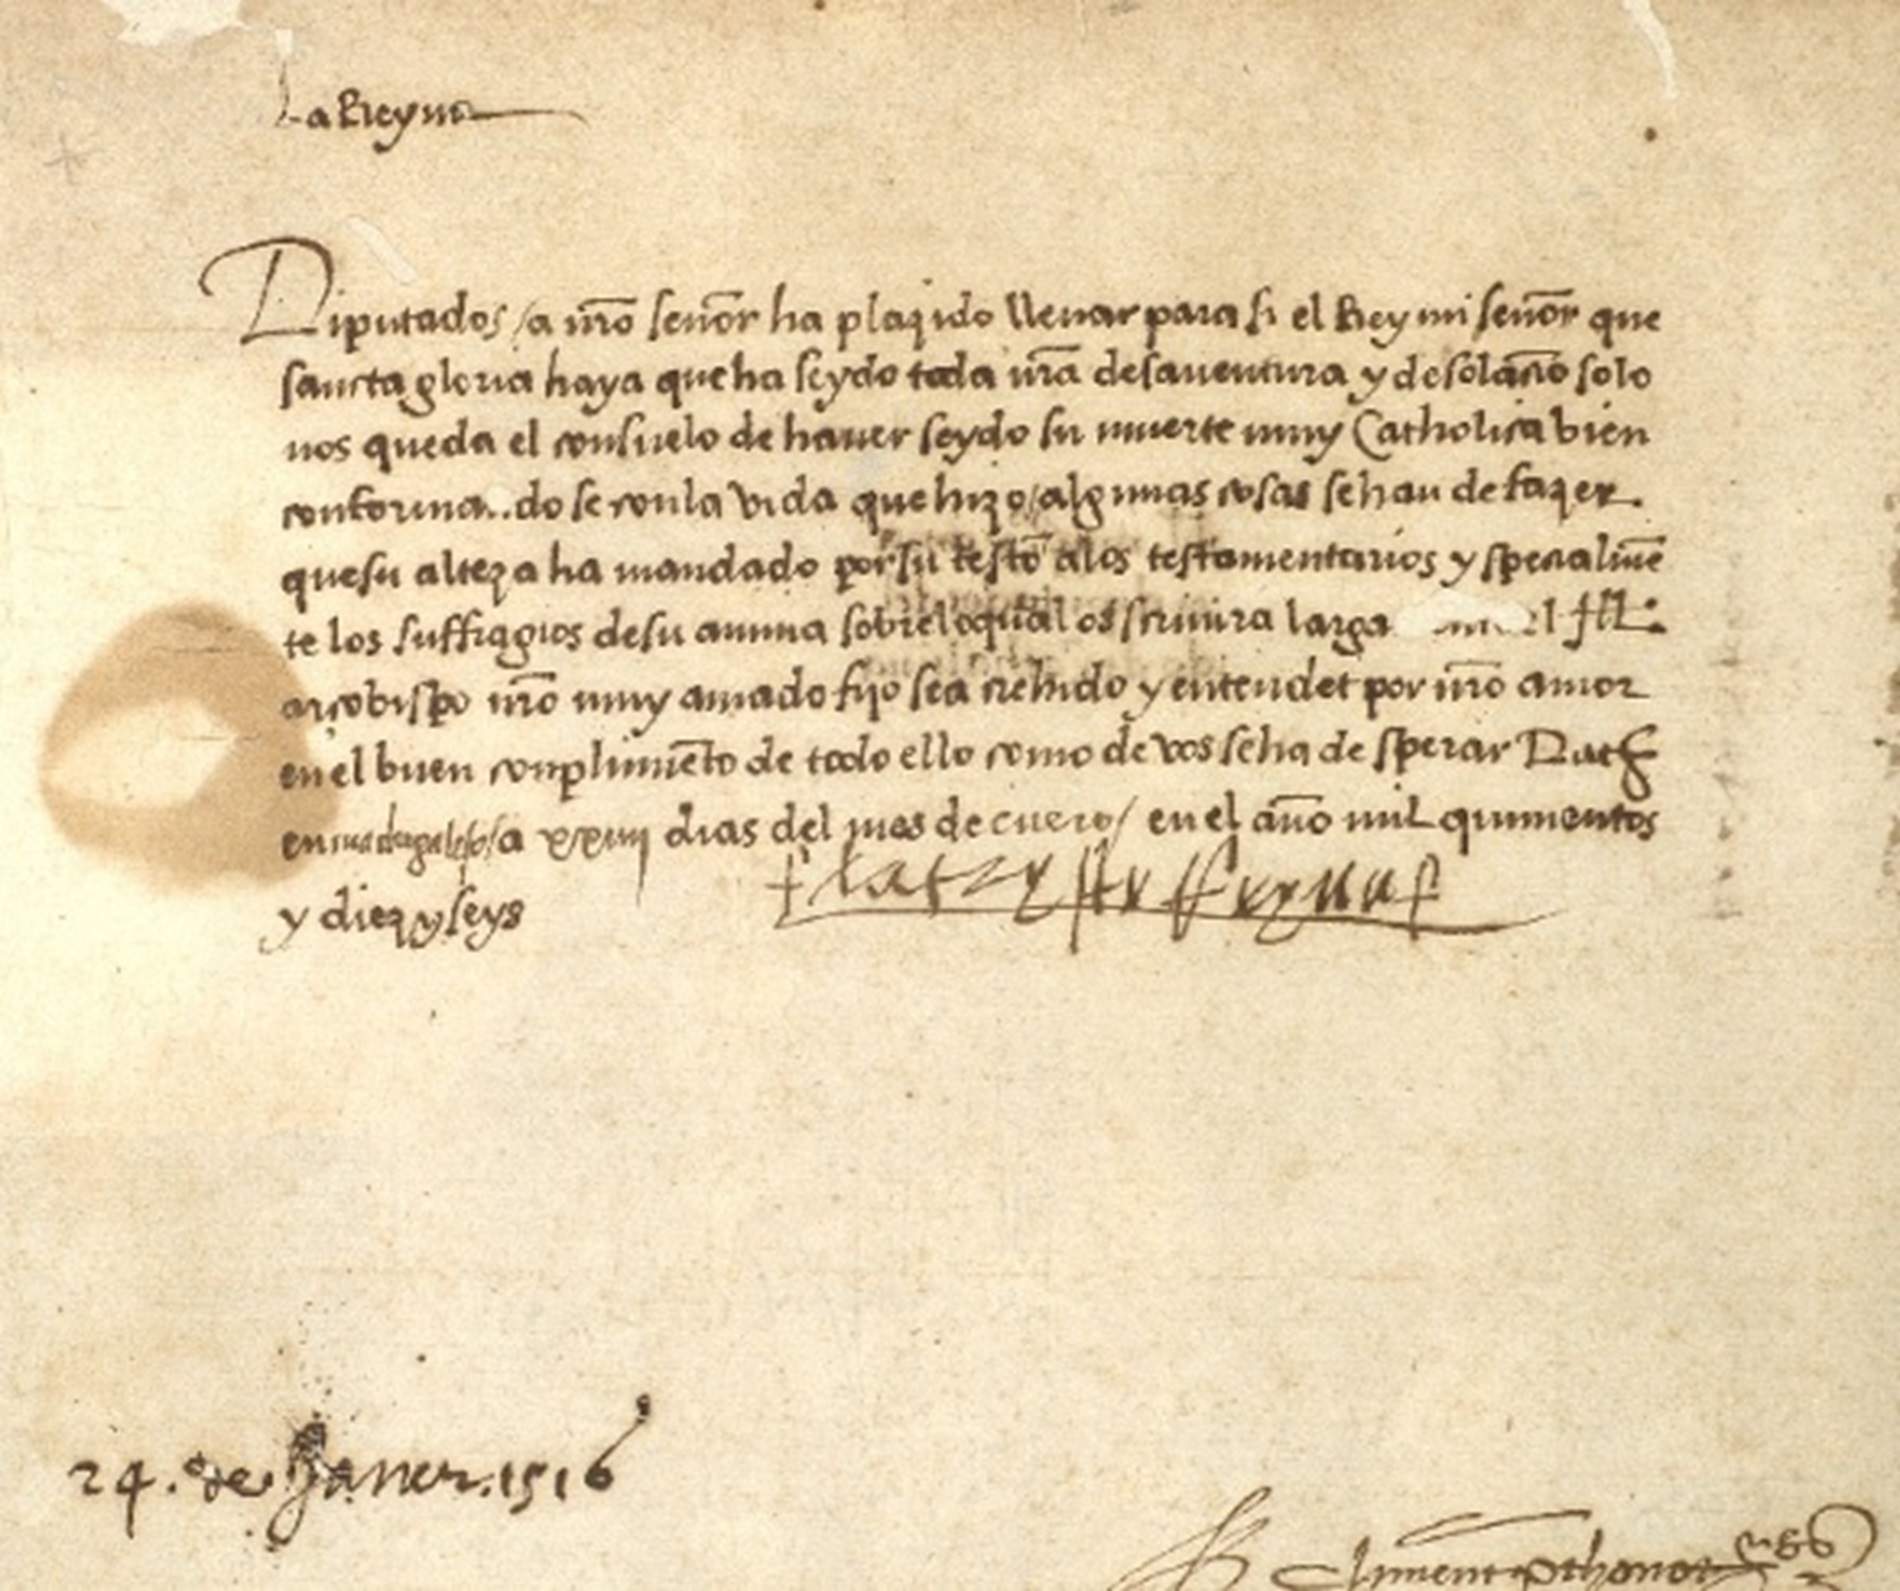 La Reyna
Diputados / a nr̃o señor ha plazido lleuar para si el Rey mi señor que
sancta gloria haya que ha seydo toda nr̃a desauentura y desolaçiõ solo
nos queda el consuelo de hauer seydo su muerte muy Catholica bien
conforma..do se con la vida que hizo / algunas cosas se han de fazer.
que su alteza ha mandado por su testo᷈ alos testamentarios y specialmẽ
te los suffragios de su anima sobre lo qual os scriuira larga el Ill.
arçobispo nr̃o muy amado fijo sea crehido y entendet por nr̃o amor
en el buen conplimiẽto de todo ello como de vos se ha de sperar Dat
en a xxiiij dias del mes de enero / en el año mil quinientos
y diez y seys la triste Reyna
24. de Janer. 1516
Climent pthonot